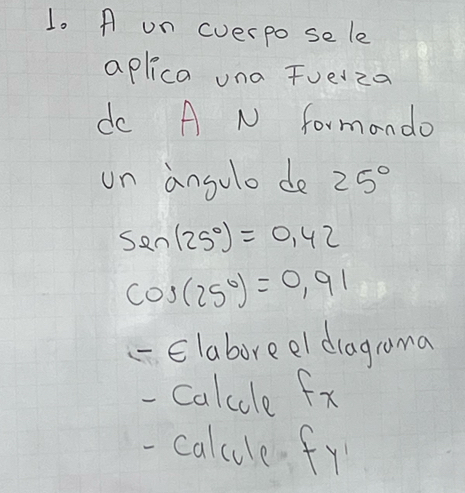 1. A un cuerpo se le
aplica una Fuerza
de A N formando
un àngulo de 25°
Sen(25°) = 0,42
cos(25°) = 0,91
- Elabore el diagrama
- Calcule fx
- Calcule fy